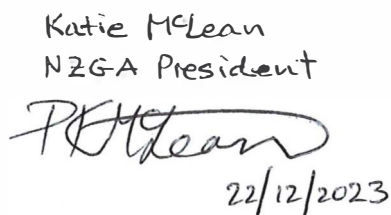 Katie McLean
NZGA President
PKMcLean
22/12/2023